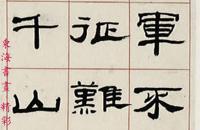 軍不
征難
千山
東海書畫 精彩